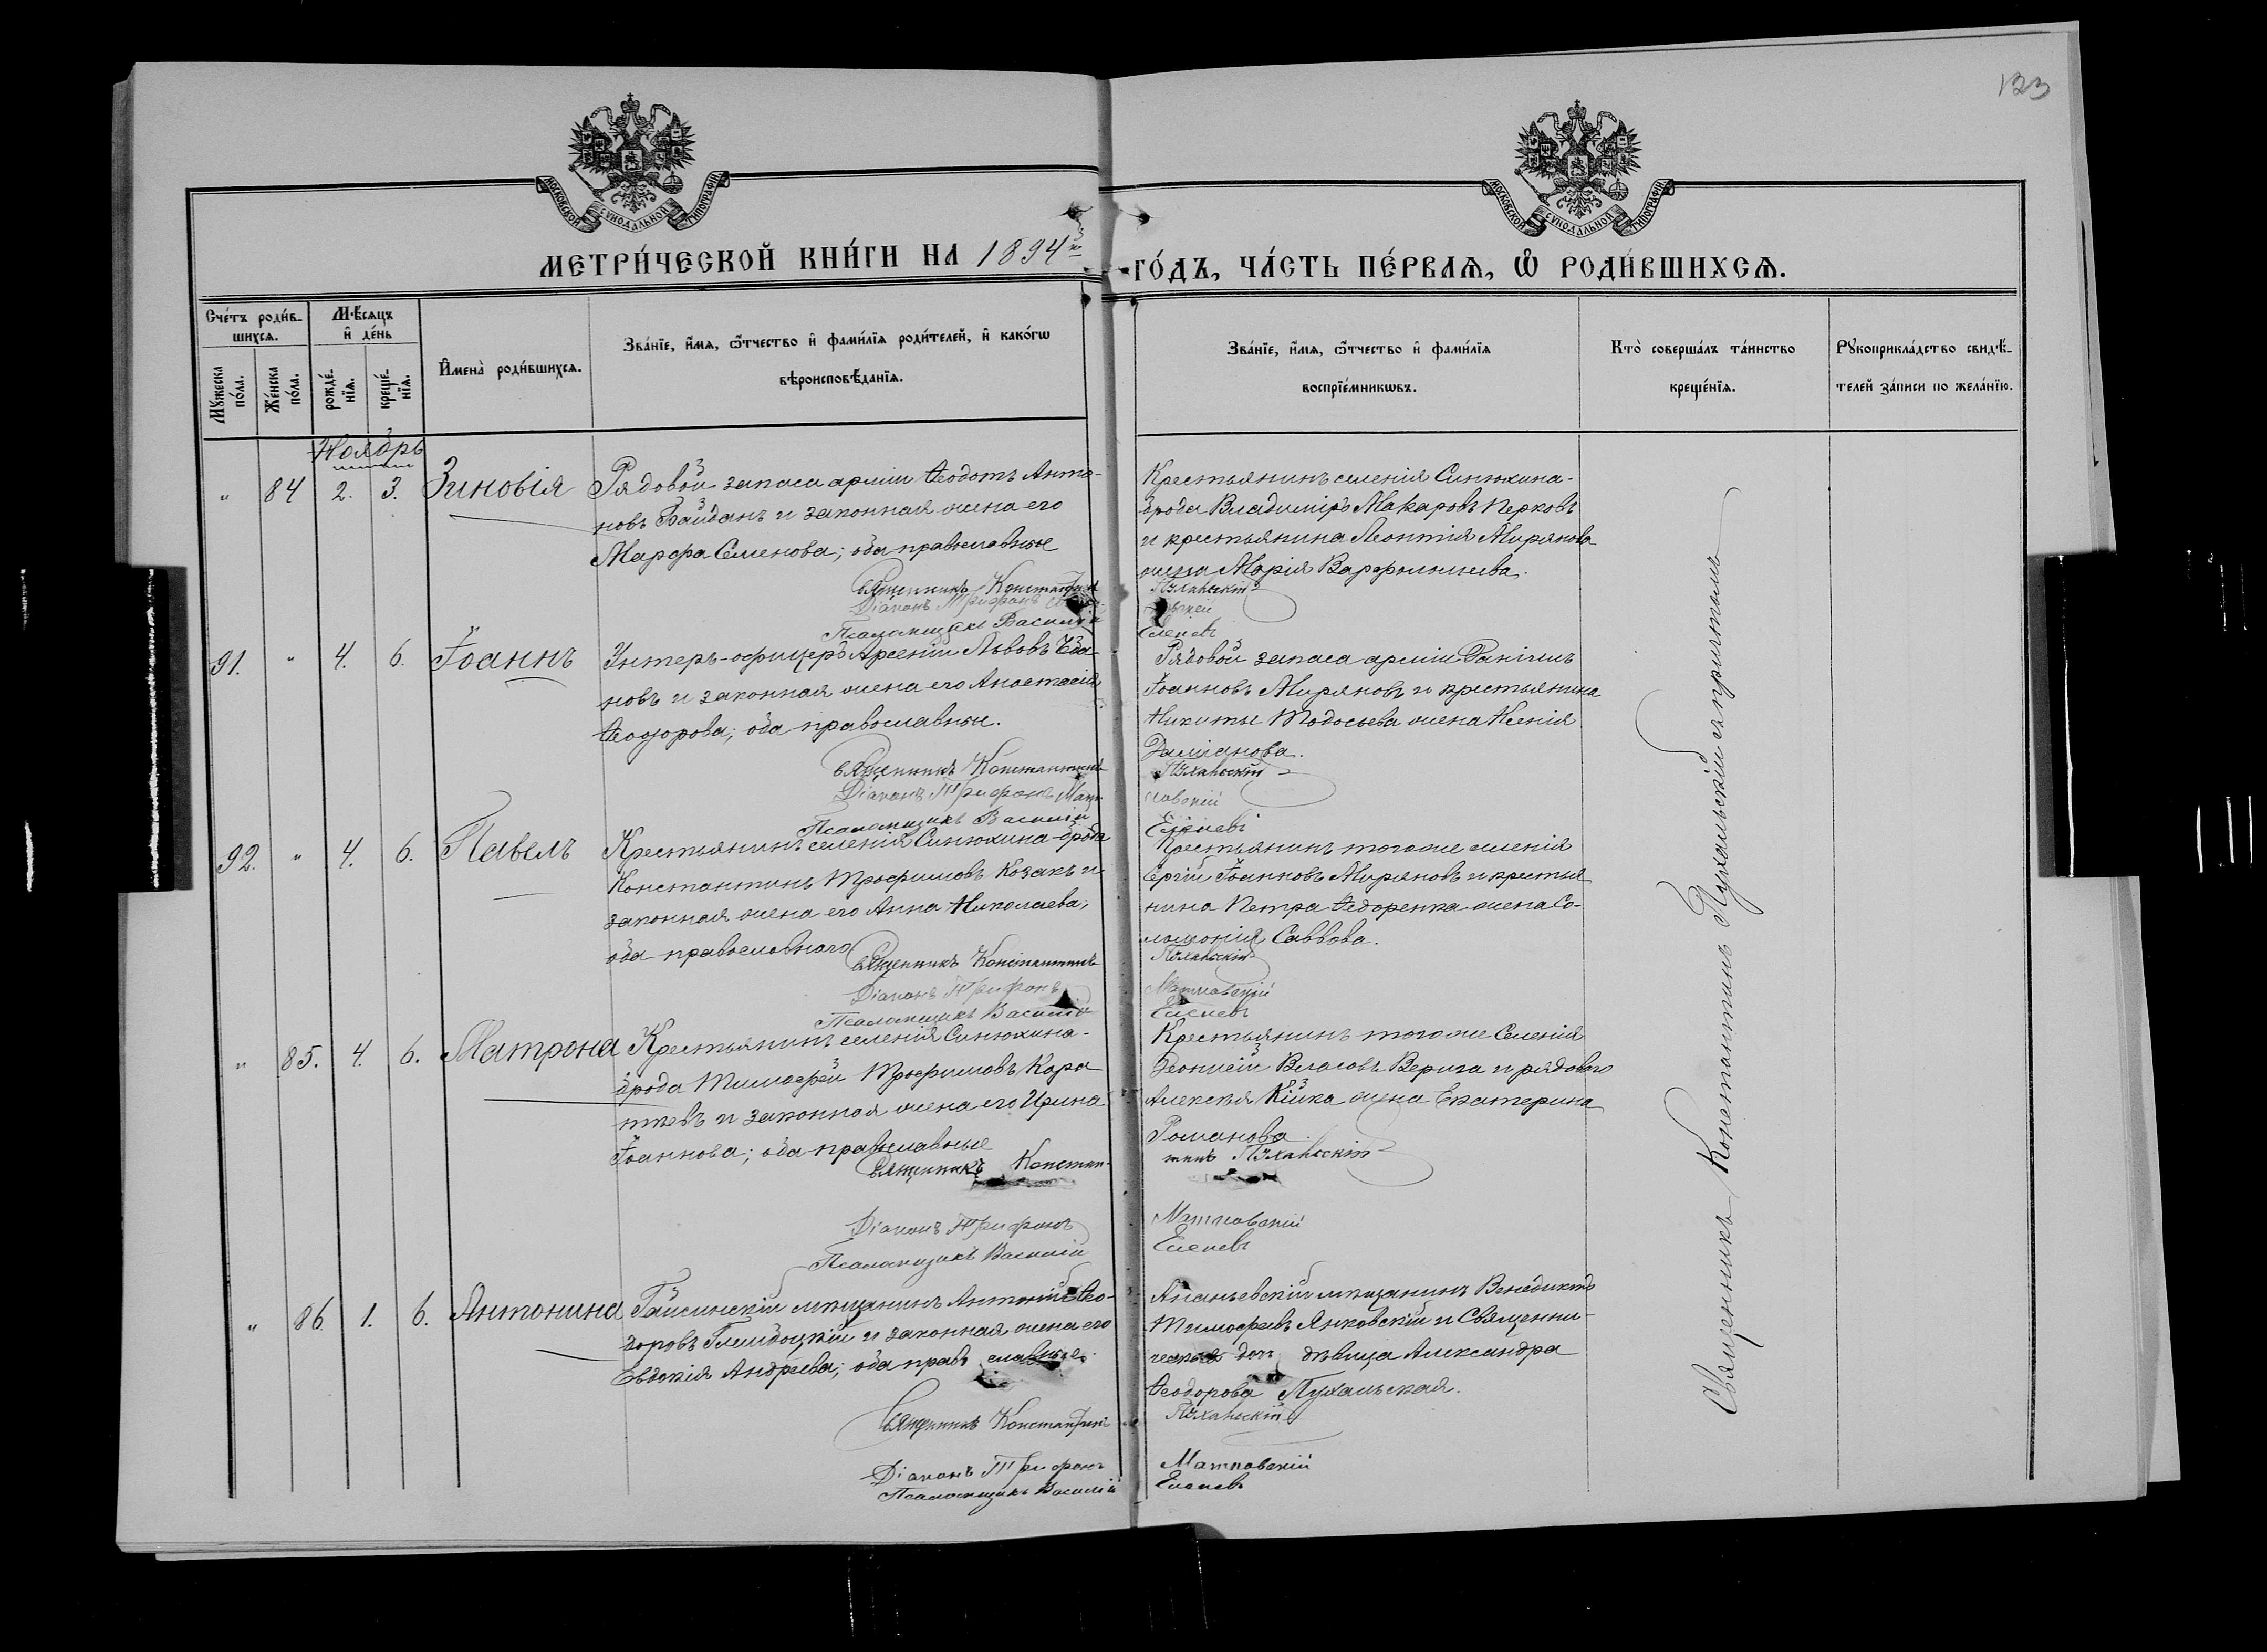 123
МОСКОВСКОЙ СѴНОДАЛЬНОЙ ТИПОГРАФІИ
МОСКОВСКОЙ СѴНОДАЛЬНОЙ ТИПОГРАФІИ
МЕТРИ́ЧЕСКОЙ КНИ́ГИ НА 1894й
ГО́ДЪ, ЧА́СТЬ ПЕ́РВАѦ, Ѽ РОДИ́ВШИХСѦ.
Сче́тъ роди́в-
шихсѧ.
Мѣ́сѧцъ
и҆ де́нь
Мꙋ́жеска
по́ла.
Же́нска
по́ла.
рожде́-
нїѧ.
креще́-
нїѧ.
И҆мена̀ роди́вшихсѧ.
Зва́нїе, и҆́мѧ, ѻ҆́тчество и҆ фами́лїѧ роди́телей, и҆ како́гѡ
вѣроисповѣ́данїѧ.
Зва́нїе, и҆́мѧ, ѻ҆́тчество и҆ фами́лїѧ
воспрїе́мникѡвъ.
Кто̀ соверша́лъ та́инство
креще́нїѧ.
Рꙋкоприкла́дство свидѣ́-
телей за́писи по жела́нїю.
Ноябрь
" 84 2. 3. Зиновія
Рядовой запаса арміи Ѳеодотъ Анто-
новъ Байданъ и законная жена его
Марфа Семенова; оба православные
Священникъ Константинъ
Діаконъ Трифонъ
Псаломщикъ Василій
Крестьянинъ селенія Синюхина-
брода Владиміръ Макаровъ Перковъ
и крестьянина Леонтія Мирянова
жена Марія Варфоломеева.
Пухальскій
Еленевъ
91. " 4. 6. Іоаннъ
Унтеръ-офицеръ Арсеній Львовъ
новъ и законная жена его Анастасія
Ѳеодорова; оба православные.
Священникъ Константинъ
Діаконъ Трифонъ Мат-
Псаломщикъ Василій
Рядовой запаса арміи Даніилъ
Іоанновъ Миряновъ и крестьянина
Никиты Тодосьева жена Ксенія
Даміанова.
Пухальскій
ковскій
Еленевъ
92. " 4. 6. Павелъ
Крестьянинъ селенія Синюхина-брода
Константинъ Трофимовъ Козакъ и
законная жена его Анна Николаева;
оба православнаго
Священникъ Константинъ
Діаконъ Трифонъ
Псаломщикъ Василій
Крестьянинъ того же селенія
Сергій Іоанновъ Миряновъ и крестья
нина Петра Ѳедоренка жена Со-
ломонія Саввова.
Пухальскій
Матковскій
Еленевъ
" 85. 4. 6. Матрона
Крестьянинъ селенія Синюхина-
брода Тимофей Трофимовъ Кара
и законная жена его Ирина
Іоаннова; оба православные
Священникъ Констан-
Діаконъ Трифонъ
Псаломщикъ Василій
Крестьянинъ того же Селенія
Власовъ Верига и рядового
Алексѣя жена Екатерина
Романова.
тинъ Пухальскій
Матковскій
Еленевъ
" 86. 1. 6. Антонина
Гайсинскій мѣщанинъ Антоній Ѳео-
доровъ и законная жена его
Евдокія Андреева; оба православные.
Священникъ Константинъ
Діаконъ Трифонъ
Псаломщикъ Василій
Ананьевскій мѣщанинъ Венедиктъ
Тимофеевъ Янковскій и Священни-
ческая дочь дѣвица Александра
Ѳеодорова Пухальская.
Пухальскій
Матковскій
Еленевъ
Священникъ Константинъ Пухальскій съ причтомъ